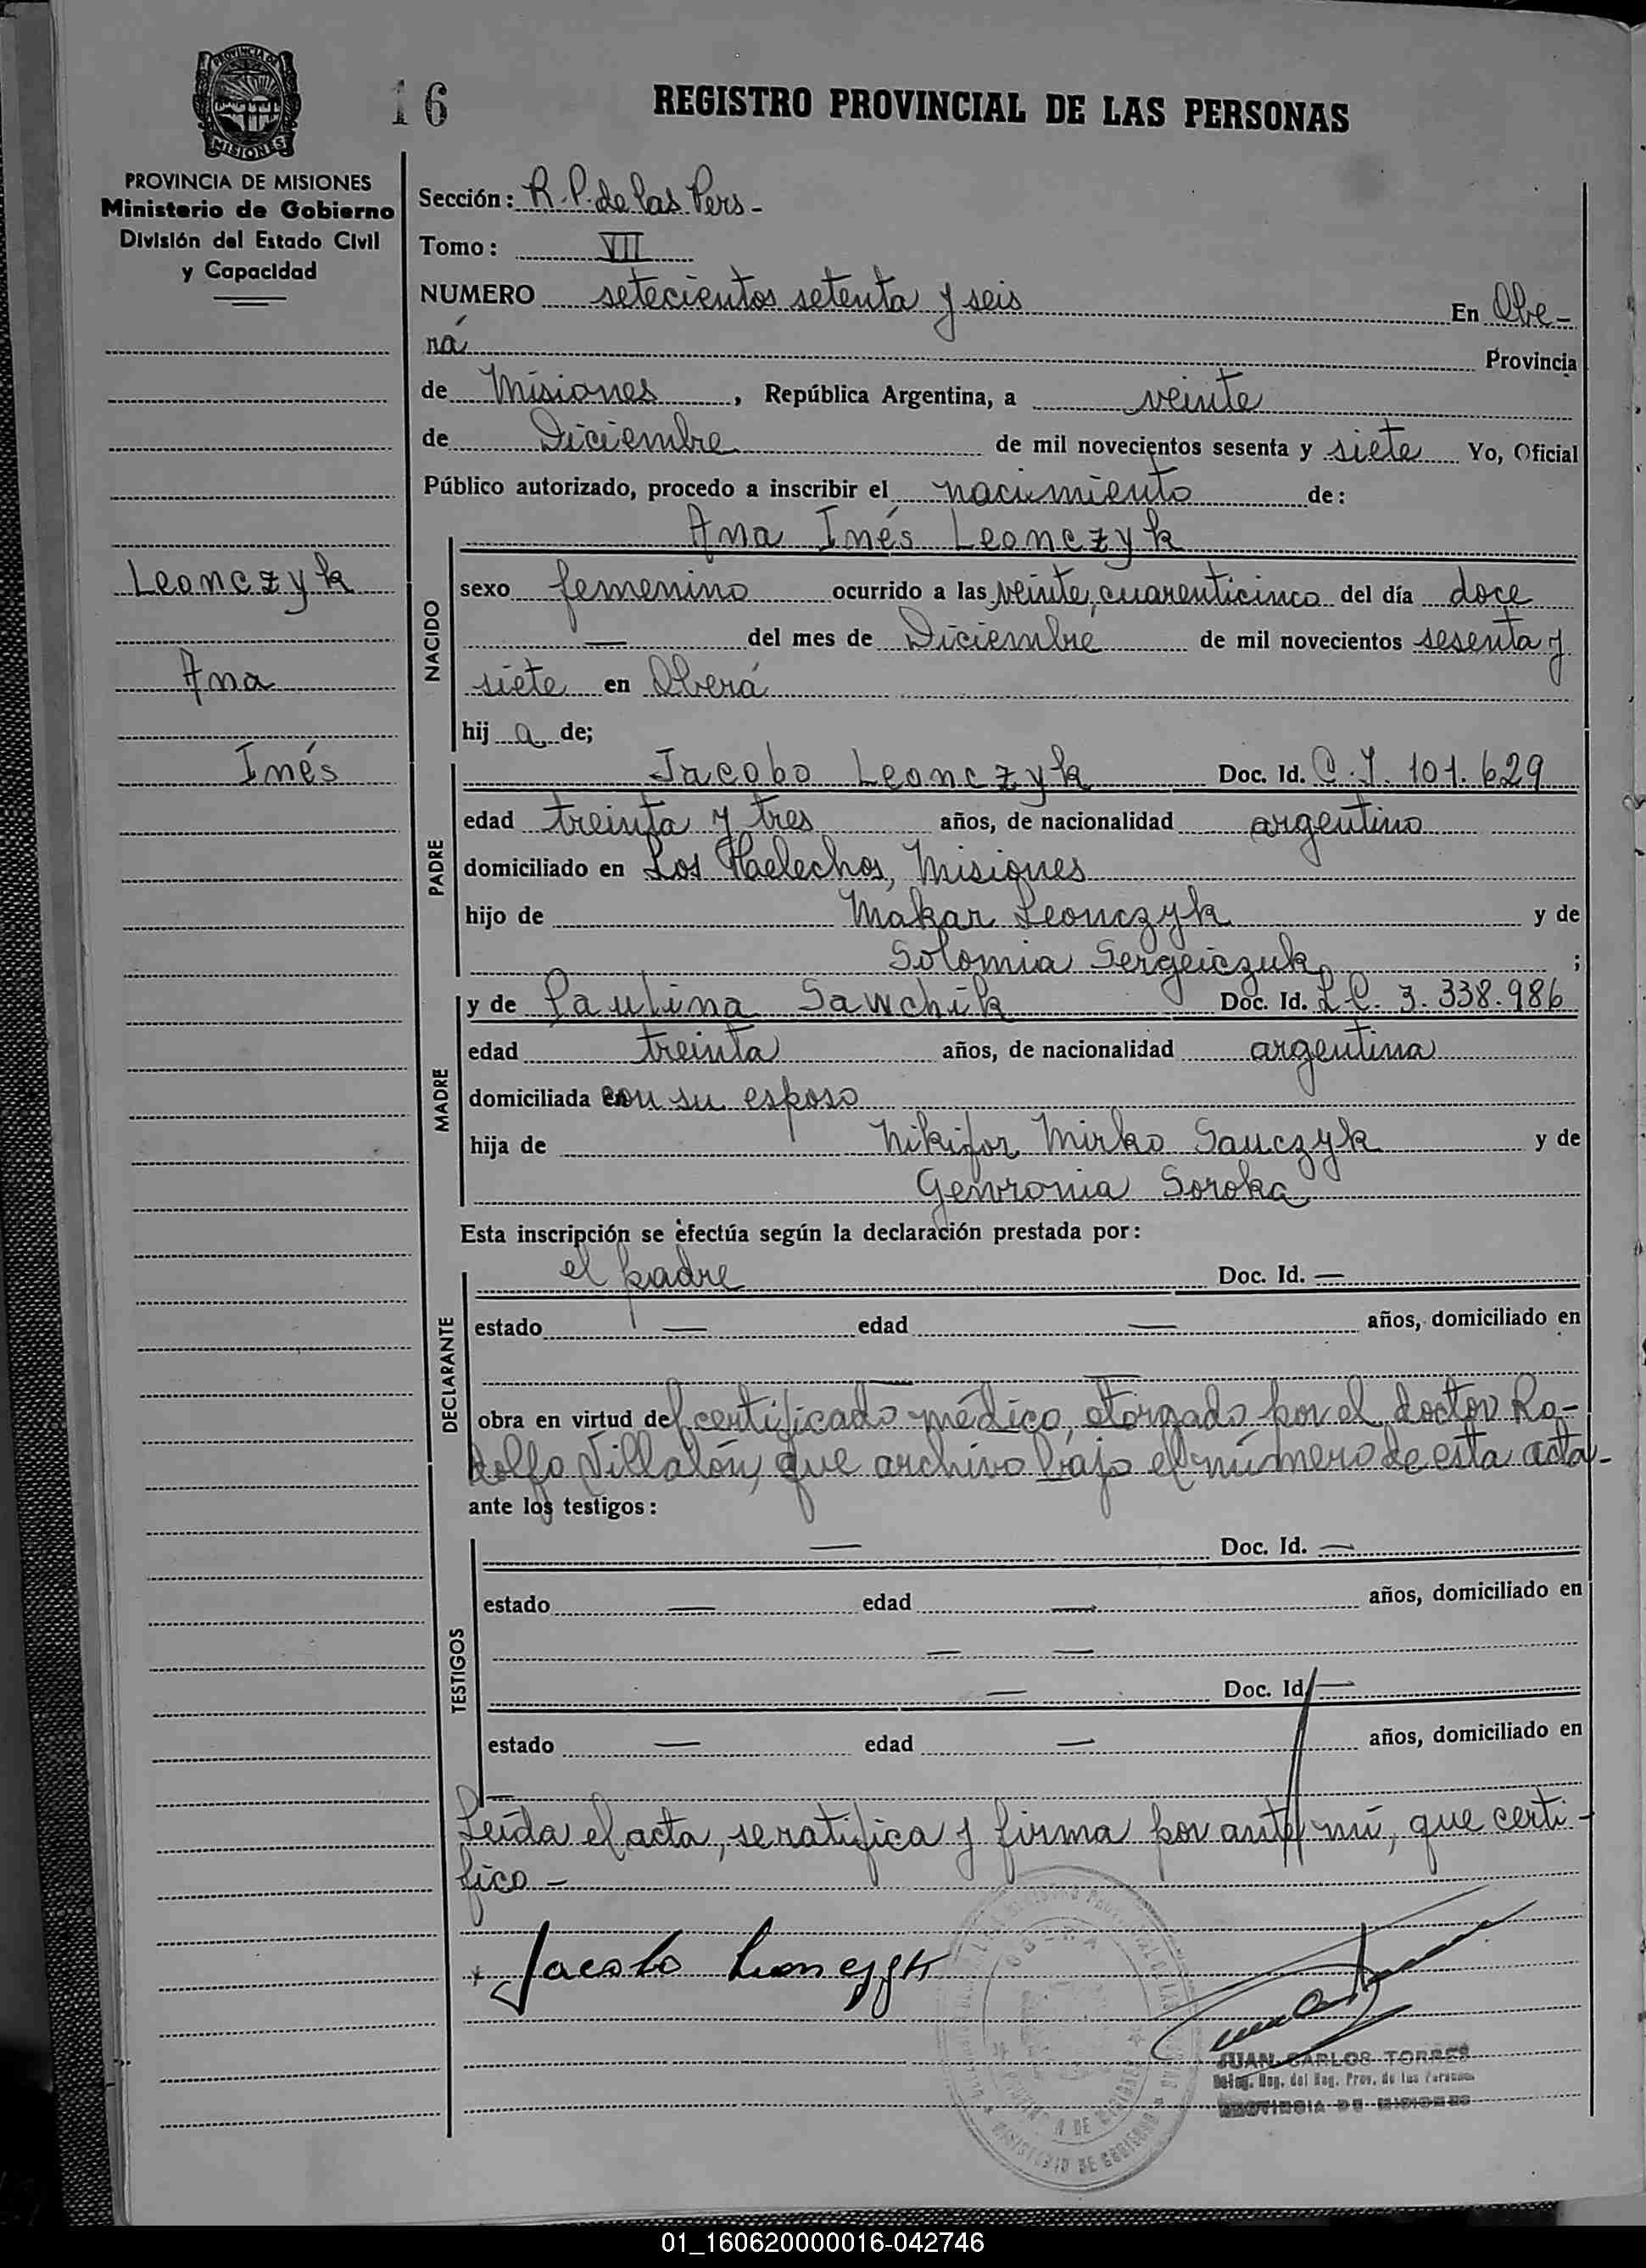 PROVINCIA DE
MISIONES
16
REGISTRO PROVINCIAL DE LAS PERSONAS
PROVINCIA DE MISIONES
Ministerio de Gobierno
División del Estado Civil
y Capacidad
Leonczyk
Ana
Inés
Sección: R.P. de las Pers-
Tomo: VII
NUMERO setecientos setenta y seis En Obe-
rá Provincia
de Misiones, República Argentina, a veinte
de Diciembre de mil novecientos sesenta y siete Yo, Oficial
Público autorizado, procedo a inscribir el nacimiento de:
Ana Inés Leonczyk
NACIDO
sexo femenino ocurrido a las veinte, cuarenticinco del día doce
— del mes de Diciembre de mil novecientos sesenta y
siete en Oberá
hij a de;
PADRE
Jacobo Leonczyk Doc. Id. C.I. 101.629
edad treinta y tres años, de nacionalidad argentino
domiciliado en Los Helechos, Misiones
hijo de Makar Leonczyk y de
Solomia Sergeiczuk ;
MADRE
y de Paulina Sawchik Doc. Id. L.C. 3.338.986
edad treinta años, de nacionalidad argentina
domiciliada con su esposo
hija de Nikifor Mirko Sauczyk y de
Genvronia Soroka
Esta inscripción se efectúa según la declaración prestada por:
DECLARANTE
el padre Doc. Id. —
estado — edad — años, domiciliado en
—
obra en virtud del certificado médico, otorgado por el doctor Ro-
dolfo Villalón, que archivo bajo el número de esta acta-
ante los testigos:
TESTIGOS
— Doc. Id. —
estado — edad — años, domiciliado en
— —
— Doc. Id. —
estado — edad — años, domiciliado en
—
Leída el acta, se ratifica y firma por ante mí, que certi-
fico-
Jacobo Leonczyk
OBERA
MINISTERIO DE GOBIERNO
JUAN CARLOS TORRES
Deleg. Reg. del Reg. Prov. de las Personas
PROVINCIA DE MISIONES
01_160620000016-042746